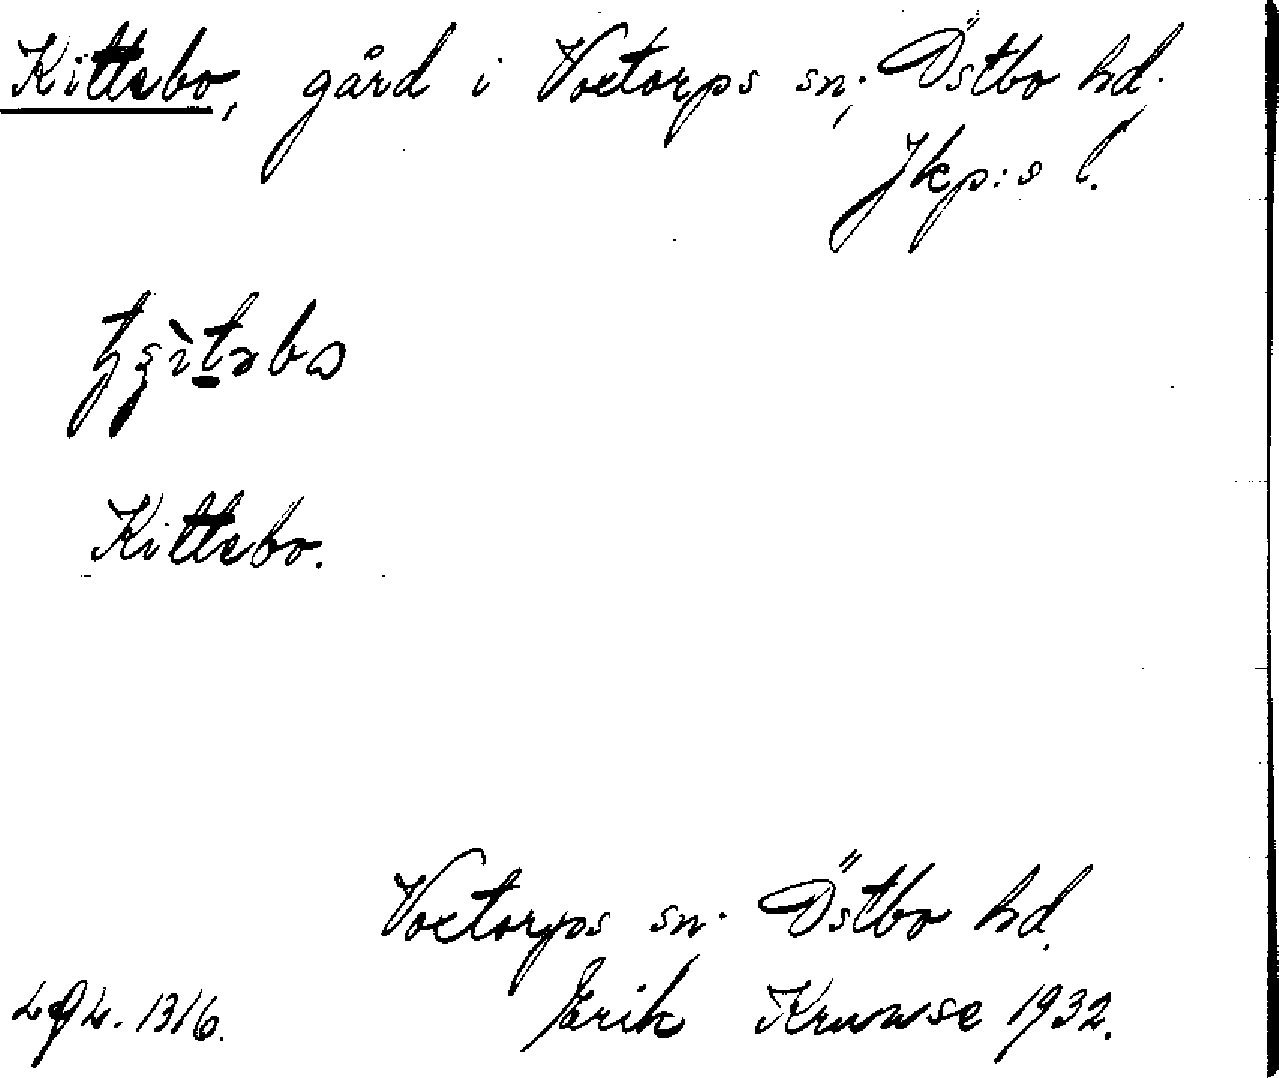 Kittebo, gård i Voxtorps sn; Östbo hd.
Jkp:s l.
Kittebo.
Voxtorps sn. Östbo hd.
Erik Kruuse 1932.